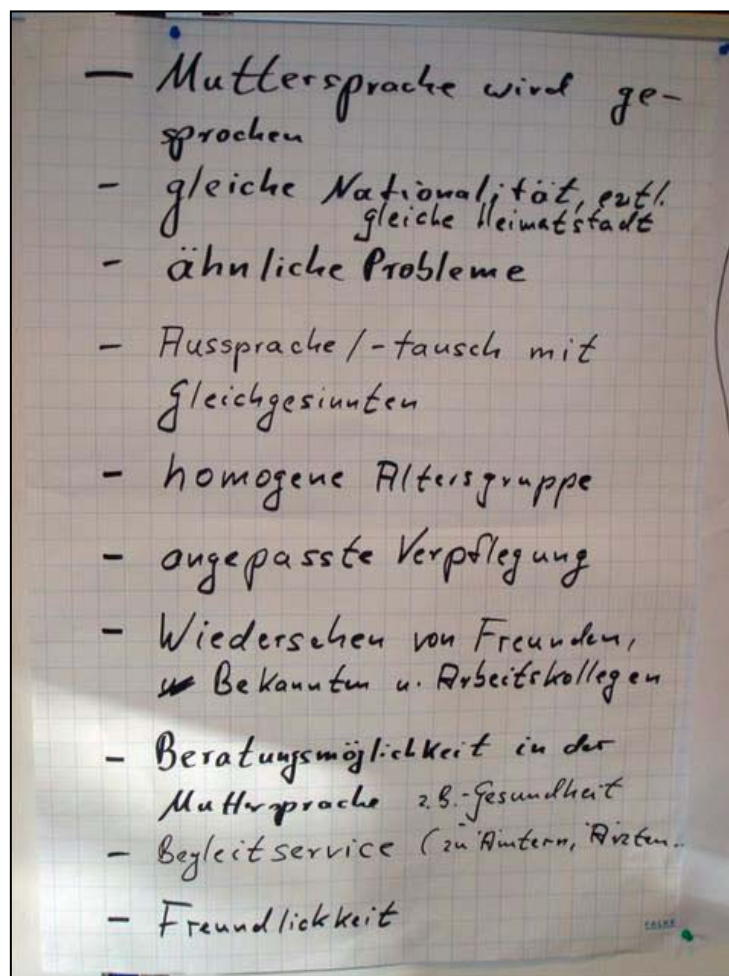 — Muttersprache wird ge-
sprochen
- gleiche Nationalität, evtl.
gleiche Heimatstadt
- ähnliche Probleme
- Aussprache/-tausch mit
Gleichgesinnten
- homogene Altersgruppe
- angepasste Verpflegung
- Wiedersehen von Freunden,
Bekannten u. Arbeitskollegen
- Beratungsmöglichkeit in der
Muttersprache z.B.-Gesundheit
- Begleitservice (zu Ämtern, Ärzten..
- Freundlickkeit